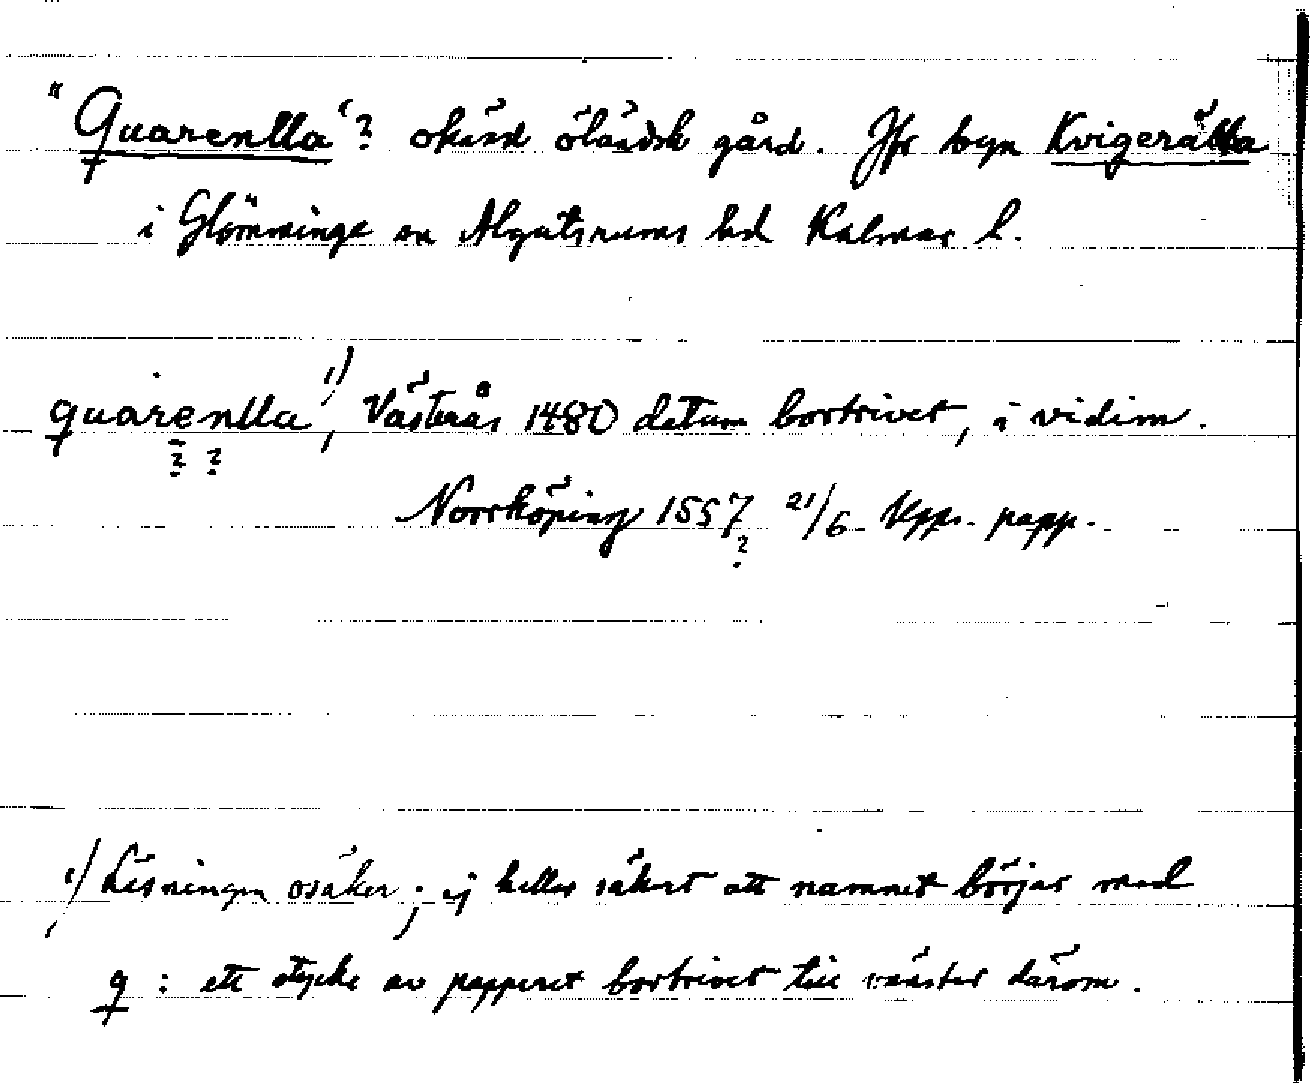 "Quarenlla"? okänd öländsk gård. Jfr byn Kvigerälla
i Glömminge sn Algutsrums hd Kalmar l.
quarenlla 1), Västerås 1480 datum bortrivet, i vidim.
? ?
Norrköping 1557 21/6 Upps. papp.
?
1) Läsningen osäker; ej heller säkert att namnet börjar med
q : ett stycke av papperet bortrivet till vänster därom.